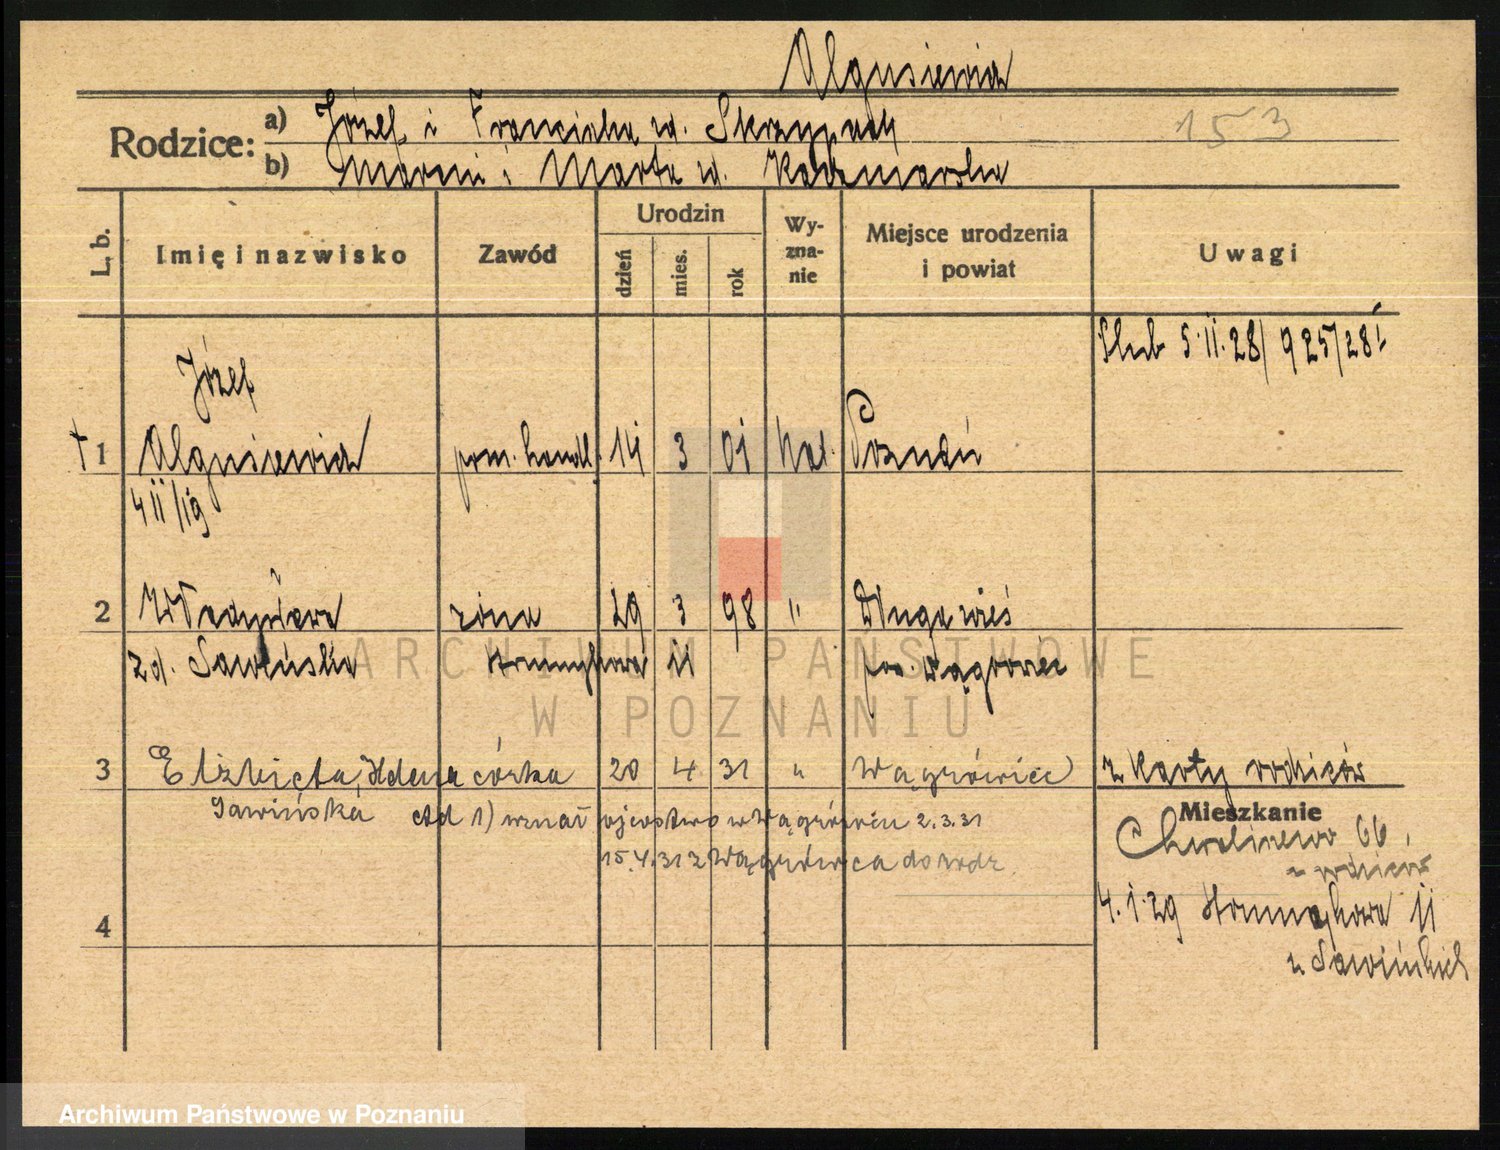 Algusiewicz
Rodzice: a) Józef i Franciszka zd. Skrzypczak
153
b) Marcin i Marta zd. Kaczmarska
L. b.
Imię i nazwisko
Zawód
Urodzin
dzień
mies.
rok
Wy-
zna-
nie
Miejsce urodzenia
i powiat
Uwagi
Ślub 5.II.28/ 925/28
Józef
† 1 Algusiewicz pom. handl. 14 3 01 kat. Poznań
4 II/19
2 Władysława żona 29 3 98 " Długa wieś
zd. Sawińska Strumykowa 11 pow. Wągrowiec
3 Elżbieta, Helena córka 20 4 31 " Wągrówiec z karty rodziców
Sawińska Ad 1) uznał ojcostwo w Wągrówcu 2.3.31
15.4.31 z Wągrówca do rodz.
Mieszkanie
Chwaliszewo 66,
u rodziców
4.1.29 Strumykowa 11
4
u Sawińskich
ARCHIWUM PAŃSTWOWE
W POZNANIU
Archiwum Państwowe w Poznaniu